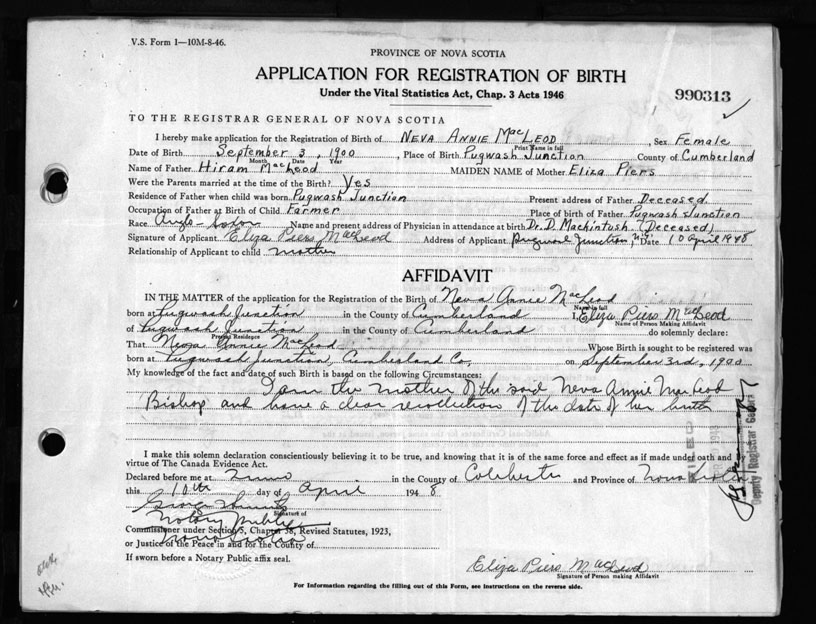 V.S. Form 1—10M-8-46.
PROVINCE OF NOVA SCOTIA
APPLICATION FOR REGISTRATION OF BIRTH
Under the Vital Statistics Act, Chap. 3 Acts 1946
990313
TO THE REGISTRAR GENERAL OF NOVA SCOTIA
I hereby make application for the Registration of Birth of NEVA ANNIE MacLEOD, Sex Female
Print Name in full
Date of Birth September 3, 1900, Place of Birth Pugwash Junction County of Cumberland
Month Date Year
Name of Father Hiram MacLeod MAIDEN NAME of Mother Eliza Piers
Were the Parents married at time of the Birth? Yes
Residence of Father when child was born Pugwash Junction Present address of Father Deceased.
Occupation of Father at Birth of Child Farmer Place of birth of Father Pugwash Junction
Race Anglo-Saxon Name and present address of Physician in attendance at birth Dr. D. Mackintosh (Deceased)
Signature of Applicant Eliza Piers MacLeod Address of Applicant Pugwash Junction, N.S. Date 10 April 1948
Relationship of Applicant to child mother
AFFIDAVIT
IN THE MATTER of the application for the Registration of Birth of Neva Annie MacLeod
Name in full
born at Pugwash Junction in the County of Cumberland I, Eliza Piers MacLeod
Name of Person Making Affidavit
of Pugwash Junction in the County of Cumberland do solemnly declare:
Present Residence
That Neva Annie MacLeod Whose Birth is sought to be registered was
born at Pugwash Junction, Cumberland Co, on September 3rd, 1900
My knowledge of the fact and date of such Birth is based on the following Circumstances:
I am the mother of the said Neva Annie MacLeod
Bishop and have a clear recollection of the date of her birth
I make this solemn declaration conscientiously believing it to be true, and knowing that it is of the same force and effect as if made under oath and
virtue of The Canada Evidence Act.
Declared before me at Truro in the County of Colchester and Province of Nova Scotia
this 10th day of April 1948
George
Signature of
Notary Public
Commissioner under Section 5, Chapter 38, Revised Statutes, 1923,
Nova Scotia
or Justice of the Peace in and for the County of
If sworn before a Notary Public affix seal.
Eliza Piers MacLeod
Signature of Person making Affidavit
For Information regarding the filling out of this Form, see instructions on the reverse side.
FILED
Deputy Registrar General